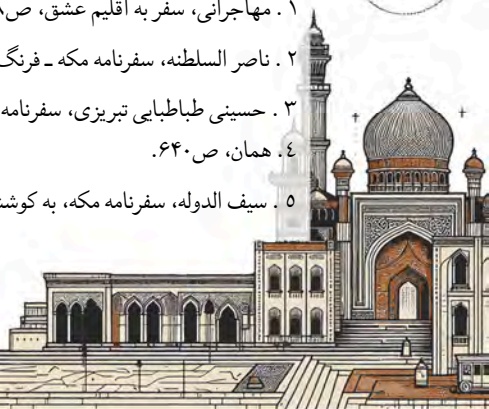 ۱ . مهاجرانی، سفر به اقلیم عشق، ص
۲ . ناصر السلطنه، سفرنامه مکه ـ فرنگ
۳ . حسینی طباطبایی تبریزی، سفرنامه
٤. همان، ص۶۴۰.
٥ . سیف الدوله، سفرنامه مکه، به